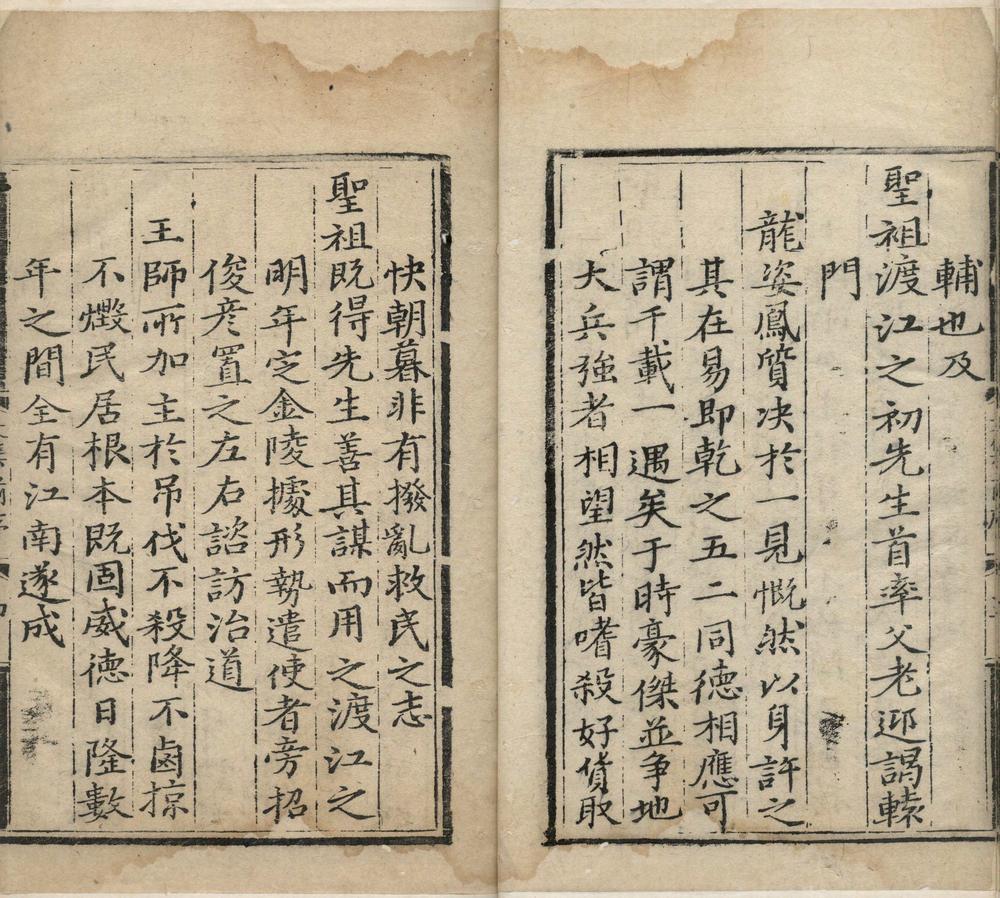 輔也及
聖祖渡江之初先生首率父老迎謁轅
門
龍姿鳳質决於一見慨然以身許之
其在易即乾之五二同德相應可
謂千載一遇矣于時豪傑並争地
大兵強者相望然皆嗜殺好貨取
快朝暮非有撥亂救民之志
聖祖既得先生善其謀而用之渡江之
明年定金陵據形勢遣使者旁招
俊彦置之左右諮訪治道
王師所加主於吊伐不殺降不鹵掠
不燬民居根本既固威德日隆數
年之間全有江南遂成